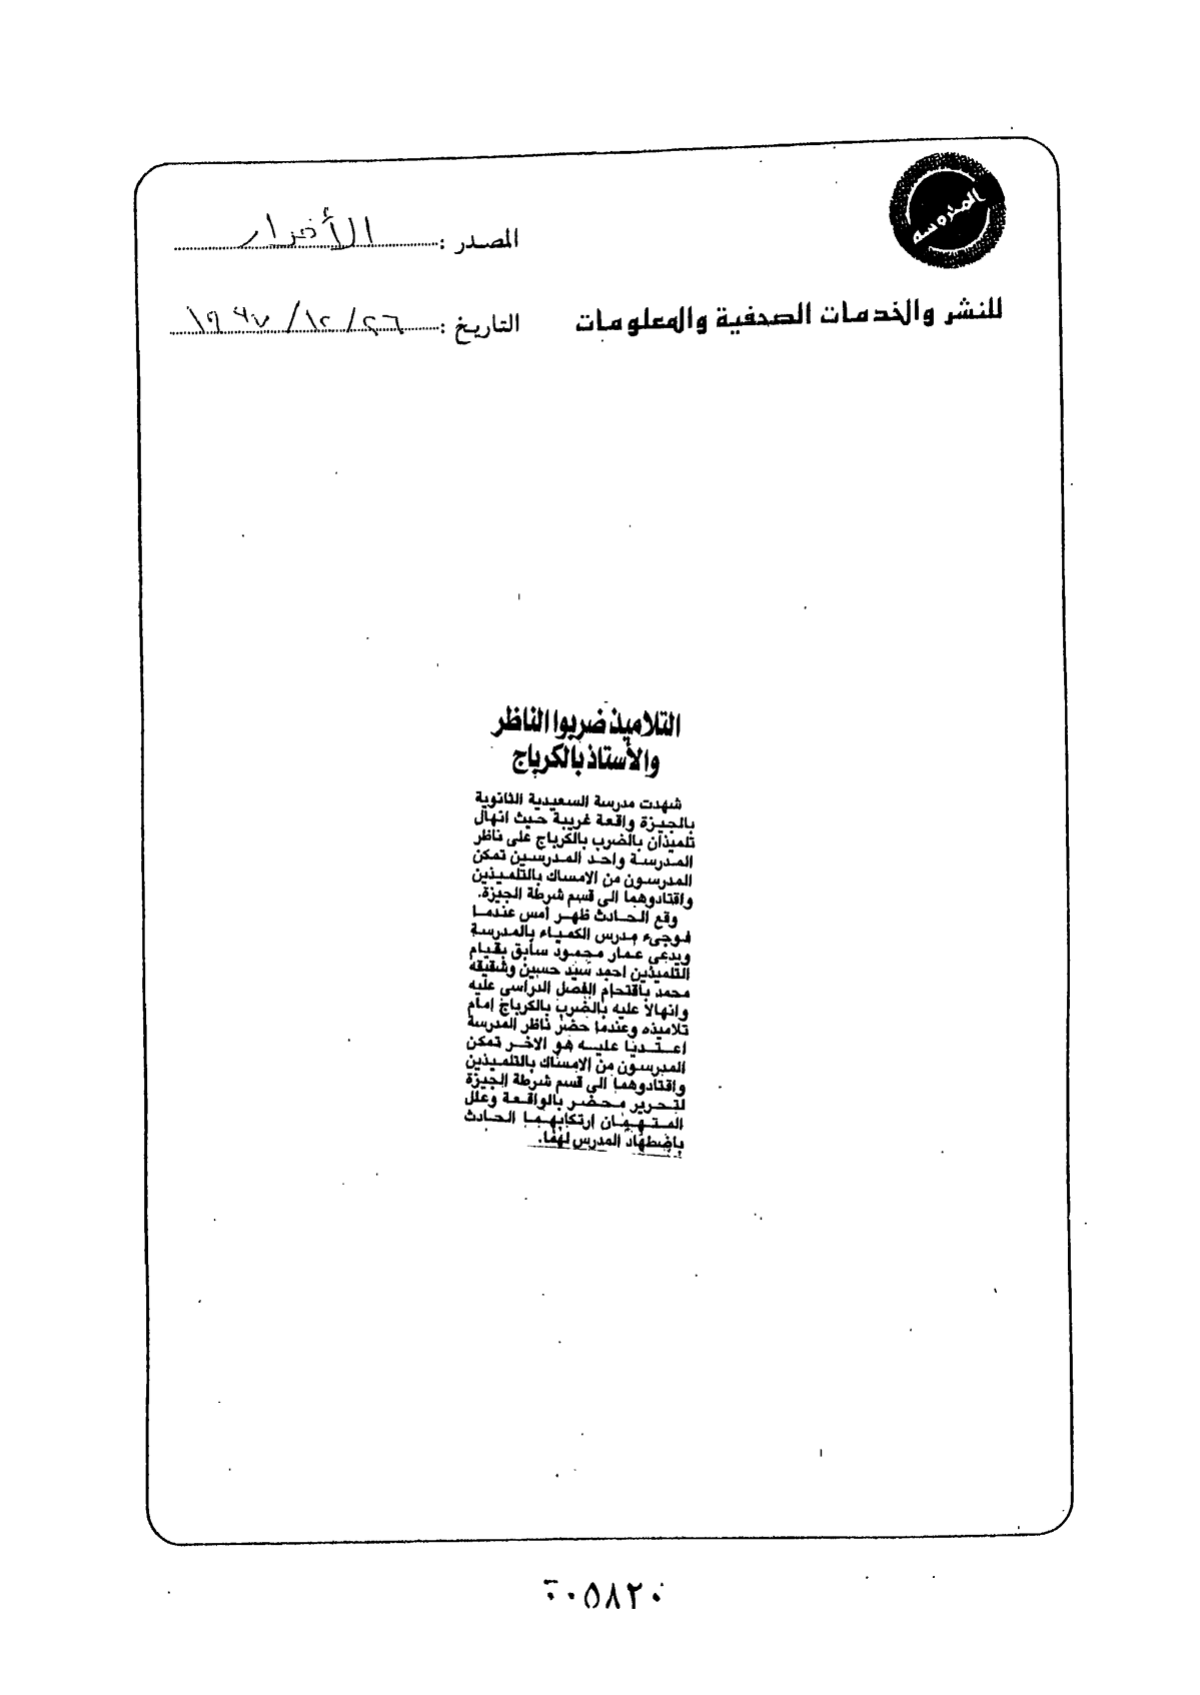 المحروسة
للنشر والخدمات الصحفية والمعلومات
المصدر : الأحرار
التاريخ : ٢٦ / ١٢ / ١٩٩٧
التلاميذ ضربوا الناظر
والأستاذ بالكرباج
شهدت مدرسة السعيدية الثانوية
بالجيزة واقعة غريبة حيث انهال
تلميذان بالضرب بالكرباج على ناظر
المدرسة واحد المدرسين تمكن
المدرسون من الامساك بالتلميذين
واقتادوهما الى قسم شرطة الجيزة.
وقع الحادث ظهر أمس عندما
فوجىء مدرس الكمياء بالمدرسة
ويدعى عمار محمود سابق بقيام
التلميذين احمد سيد حسين وشقيقه
محمد باقتحام الفصل الدراسى عليه
وانهالا عليه بالضرب بالكرباج امام
تلاميذه وعندما حضر ناظر المدرسة
اعتديا عليه هو الاخر تمكن
المدرسون من الامساك بالتلميذين
واقتادوهما الى قسم شرطة الجيزة
لتحرير محضر بالواقعة وعلل
المتهمان ارتكابهما الحادث
باضطهاد المدرس لهما.
٠٠٥٨٢٠